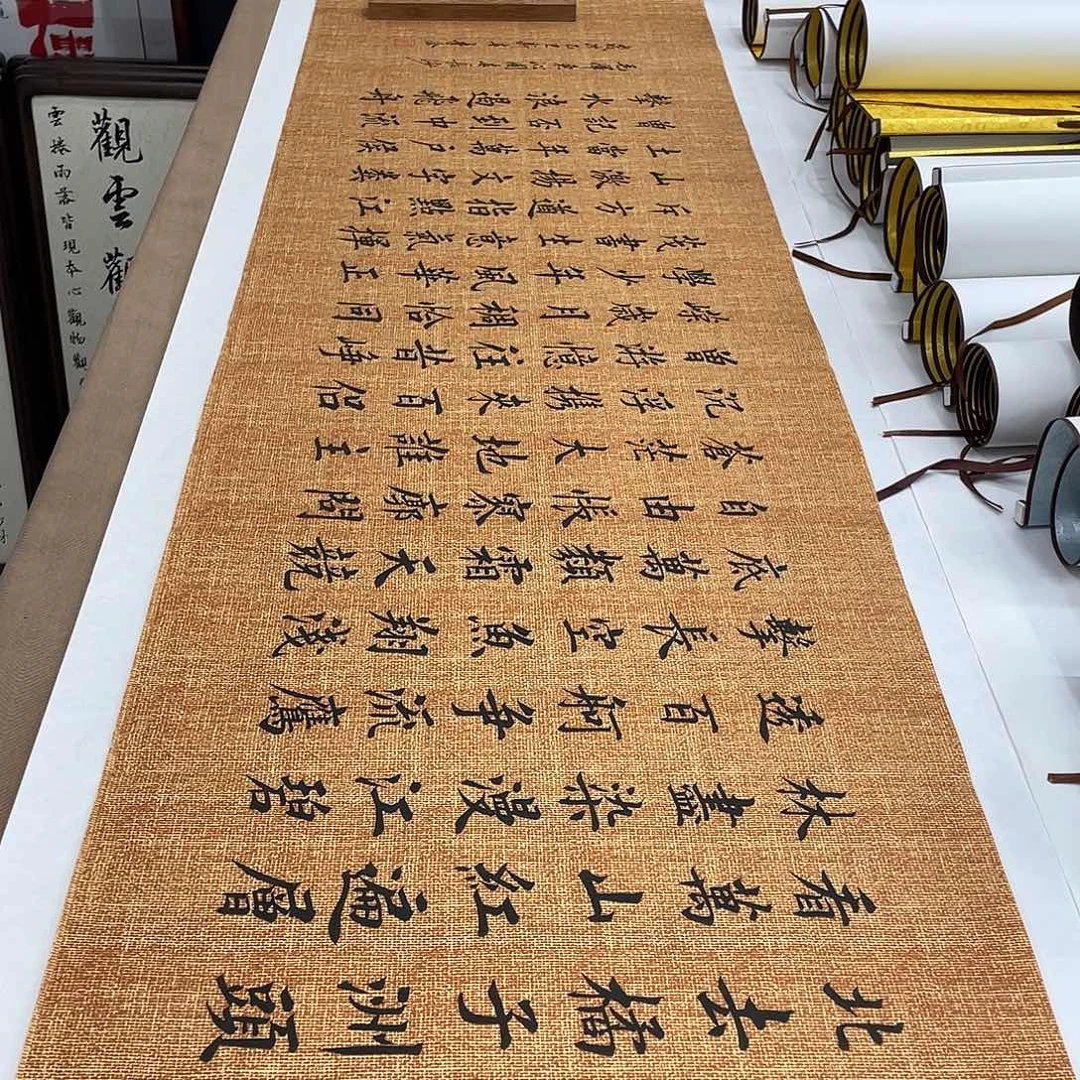 北去橘子洲頭
看萬山紅遍層
林盡染漫江碧
透百舸爭流鷹
擊長空魚翔淺
底萬類霜天競
自由悵寥廓問
蒼茫大地誰主
沉浮攜來百侶
曾游憶往昔崢
嶸歲月稠恰同
學少年風華正
茂書生意氣揮
斥方遒指點江
山激揚文字糞
土當年萬戶侯
曾記否到中流
擊水浪遏飛舟
毛澤東沁園春長沙
觀雲觀
雲捲雨落皆現本心觀物觀